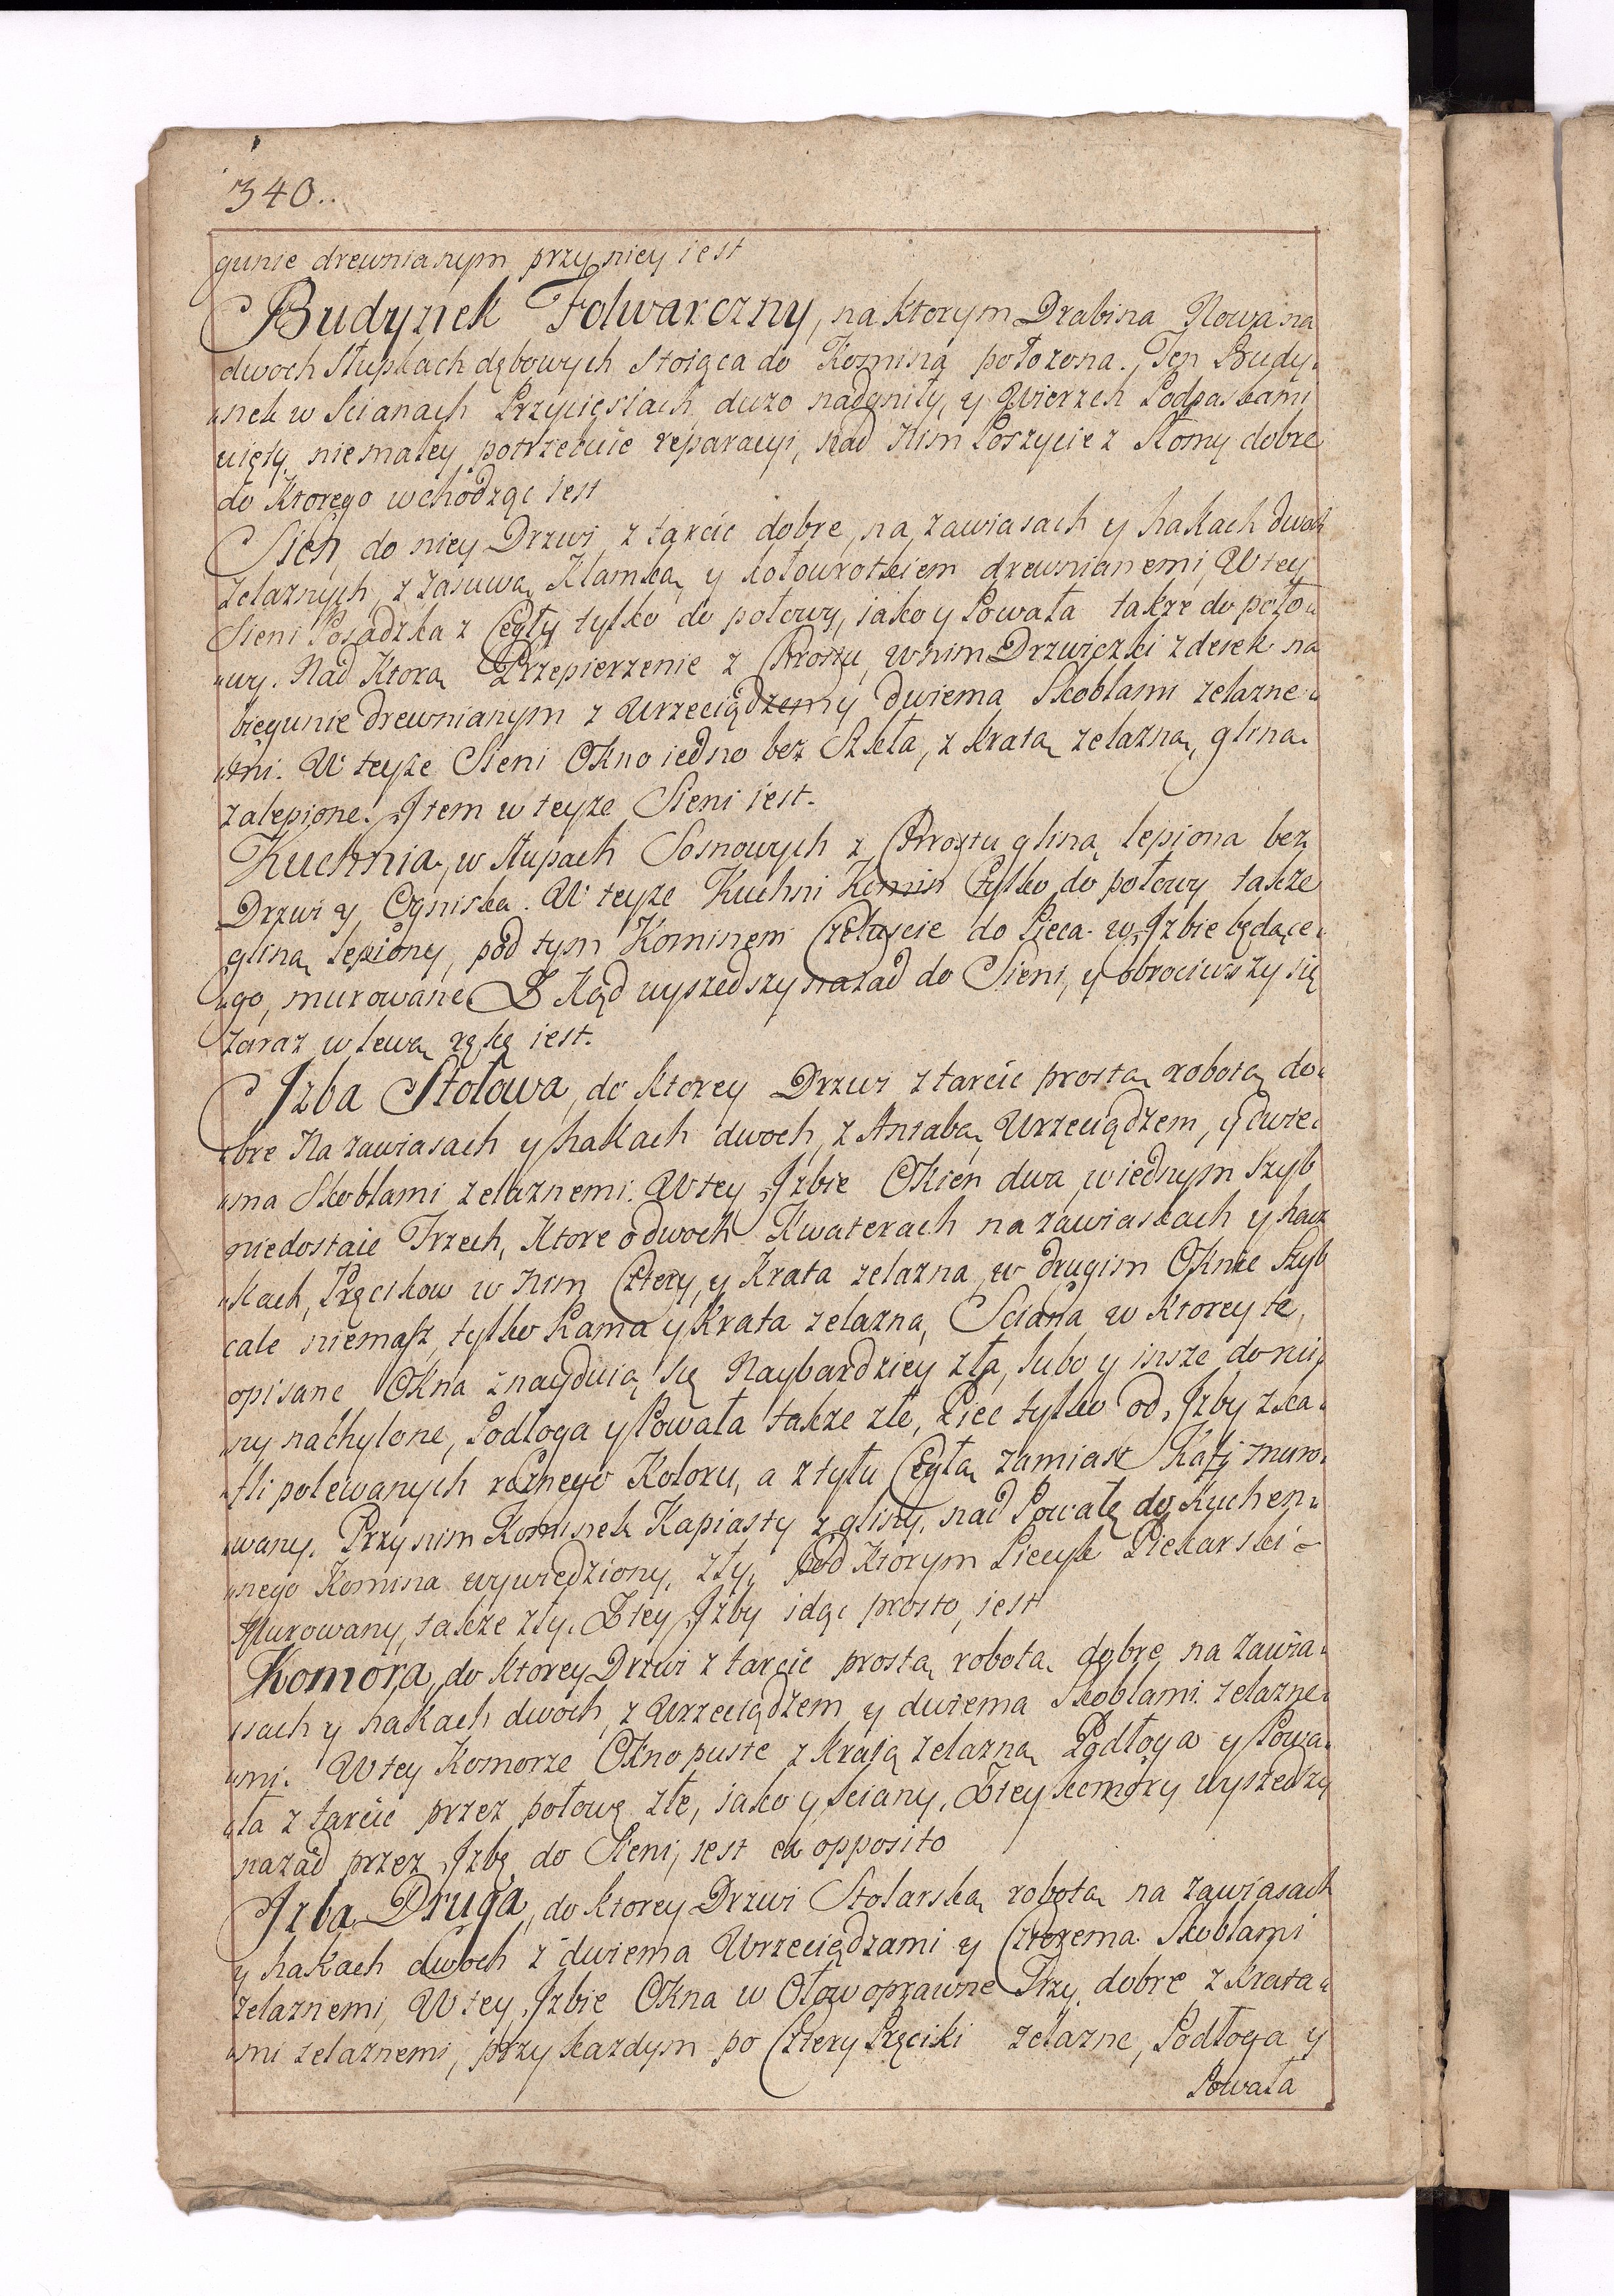 340..
gunie drewnianym przy niey iest
Budynek Folwarczny, na ktorym Drabina Nowa na
dwoch Słupkach dębowych Stoiąca do Komina położona. Ten Budy„
„nek w Scianach Przyciesiach duzo nadgniły, y Wierzch Podpaskami
niemałey potrzebuie reparacyi, Nad Nim Poszycie z Słomy dobre
do Ktorego wchodząc iest
Sień, do niey Drzwi z tarcic dobre, na zawiasach y hakach dwoch
żelaznych, z zasuwą Klamką y kołowrotkiem drewnianemi, W tey
Sieni Posadzka z Cegły tylko do połowy, iako y Powała także do poło„
„wy. Nad Ktorą Przepierzenie z Chrostu, w nim Drzwiczki z desek na
biegunie drewnianym z Wrzeciądzem y dwiema Skoblami żelazne„
„mi. W teyże Sieni Okno iedno bez Szkła, z kratą żelazną, gliną
zalepione. Item w teyże Sieni iest.
Kuchnia, w słupach Sosnowych z Chrostu gliną lepiona bez
Drzwi y Ogniska. W teyże Kuchni Komin tylko do połowy także
gliną lepiony, pod tym Kominem Czeluscie do Pieca w Izbie będące„
„go, murowane Z Kąd wyszedszy nazad do Sieni, y obrociwszy się
zaraz w lewą rękę iest.
Izba Stołowa, do Ktorey Drzwi z tarcic prostą robotą do„
„bre Na zawiasach y hakach dwoch, z Antabą, Wrzeciądzem, y dwie„
„ma Skoblami żelaznemi. W tey Izbie Okien dwa, w iednym Szyb
niedostaie Trzech, Ktore o dwoch Kwaterach na zawiaskach y hacz
„kach, Pręcikow w Nim Cztery, y Krata żelazna, w drugim Oknie Szyb
cale niemasz, tylko Rama y Krata żelazna, Sciana w Ktorey te,
opisane Okna znayduią się Naybardziey zła, lubo y insze do rui„
ny nachylone, Podłoga y Powała także złe, Piec tylko od Izby z ka„
„fli polewanych rożnego Koloru, a z tyłu Cegłą zamiast Kafj muro„
„wany. Przy nim Kominek Kapiasty z gliny, nad Powałę do Kuchen„
„nego Komina wywiedziony, zły, pod Ktorym Piecyk Piekarski
Murowany, także zły. Z tey Izby idąc prosto, iest
Komora, do Ktorey Drzwi z tarcic prostą robotą dobre na zawia„
„sach y hakach dwoch, z Wrzeciądzem y dwiema Skoblami żelazne„
„mi. W tey Komorze Okno puste z kratą żelazną Podłoga y Powa„
„ła z tarcic przez połowę złe, iako y sciany. Z tey komory wyszedszy
nazad przez Izbę do Sieni, iest ex opposito
Izba Druga, do ktorey Drzwi Stolarską robotą na zawiasach
y hakach dwoch z dwiema Wrzeciądzami y Czterema Skoblami
żelaznemi, W tey Izbie Okna w Ołow oprawne Trzy, dobre, z Krata„
„mi żelaznemi, przy kazdym po Cztery Pręciki żelazne, Podłoga y
Powała